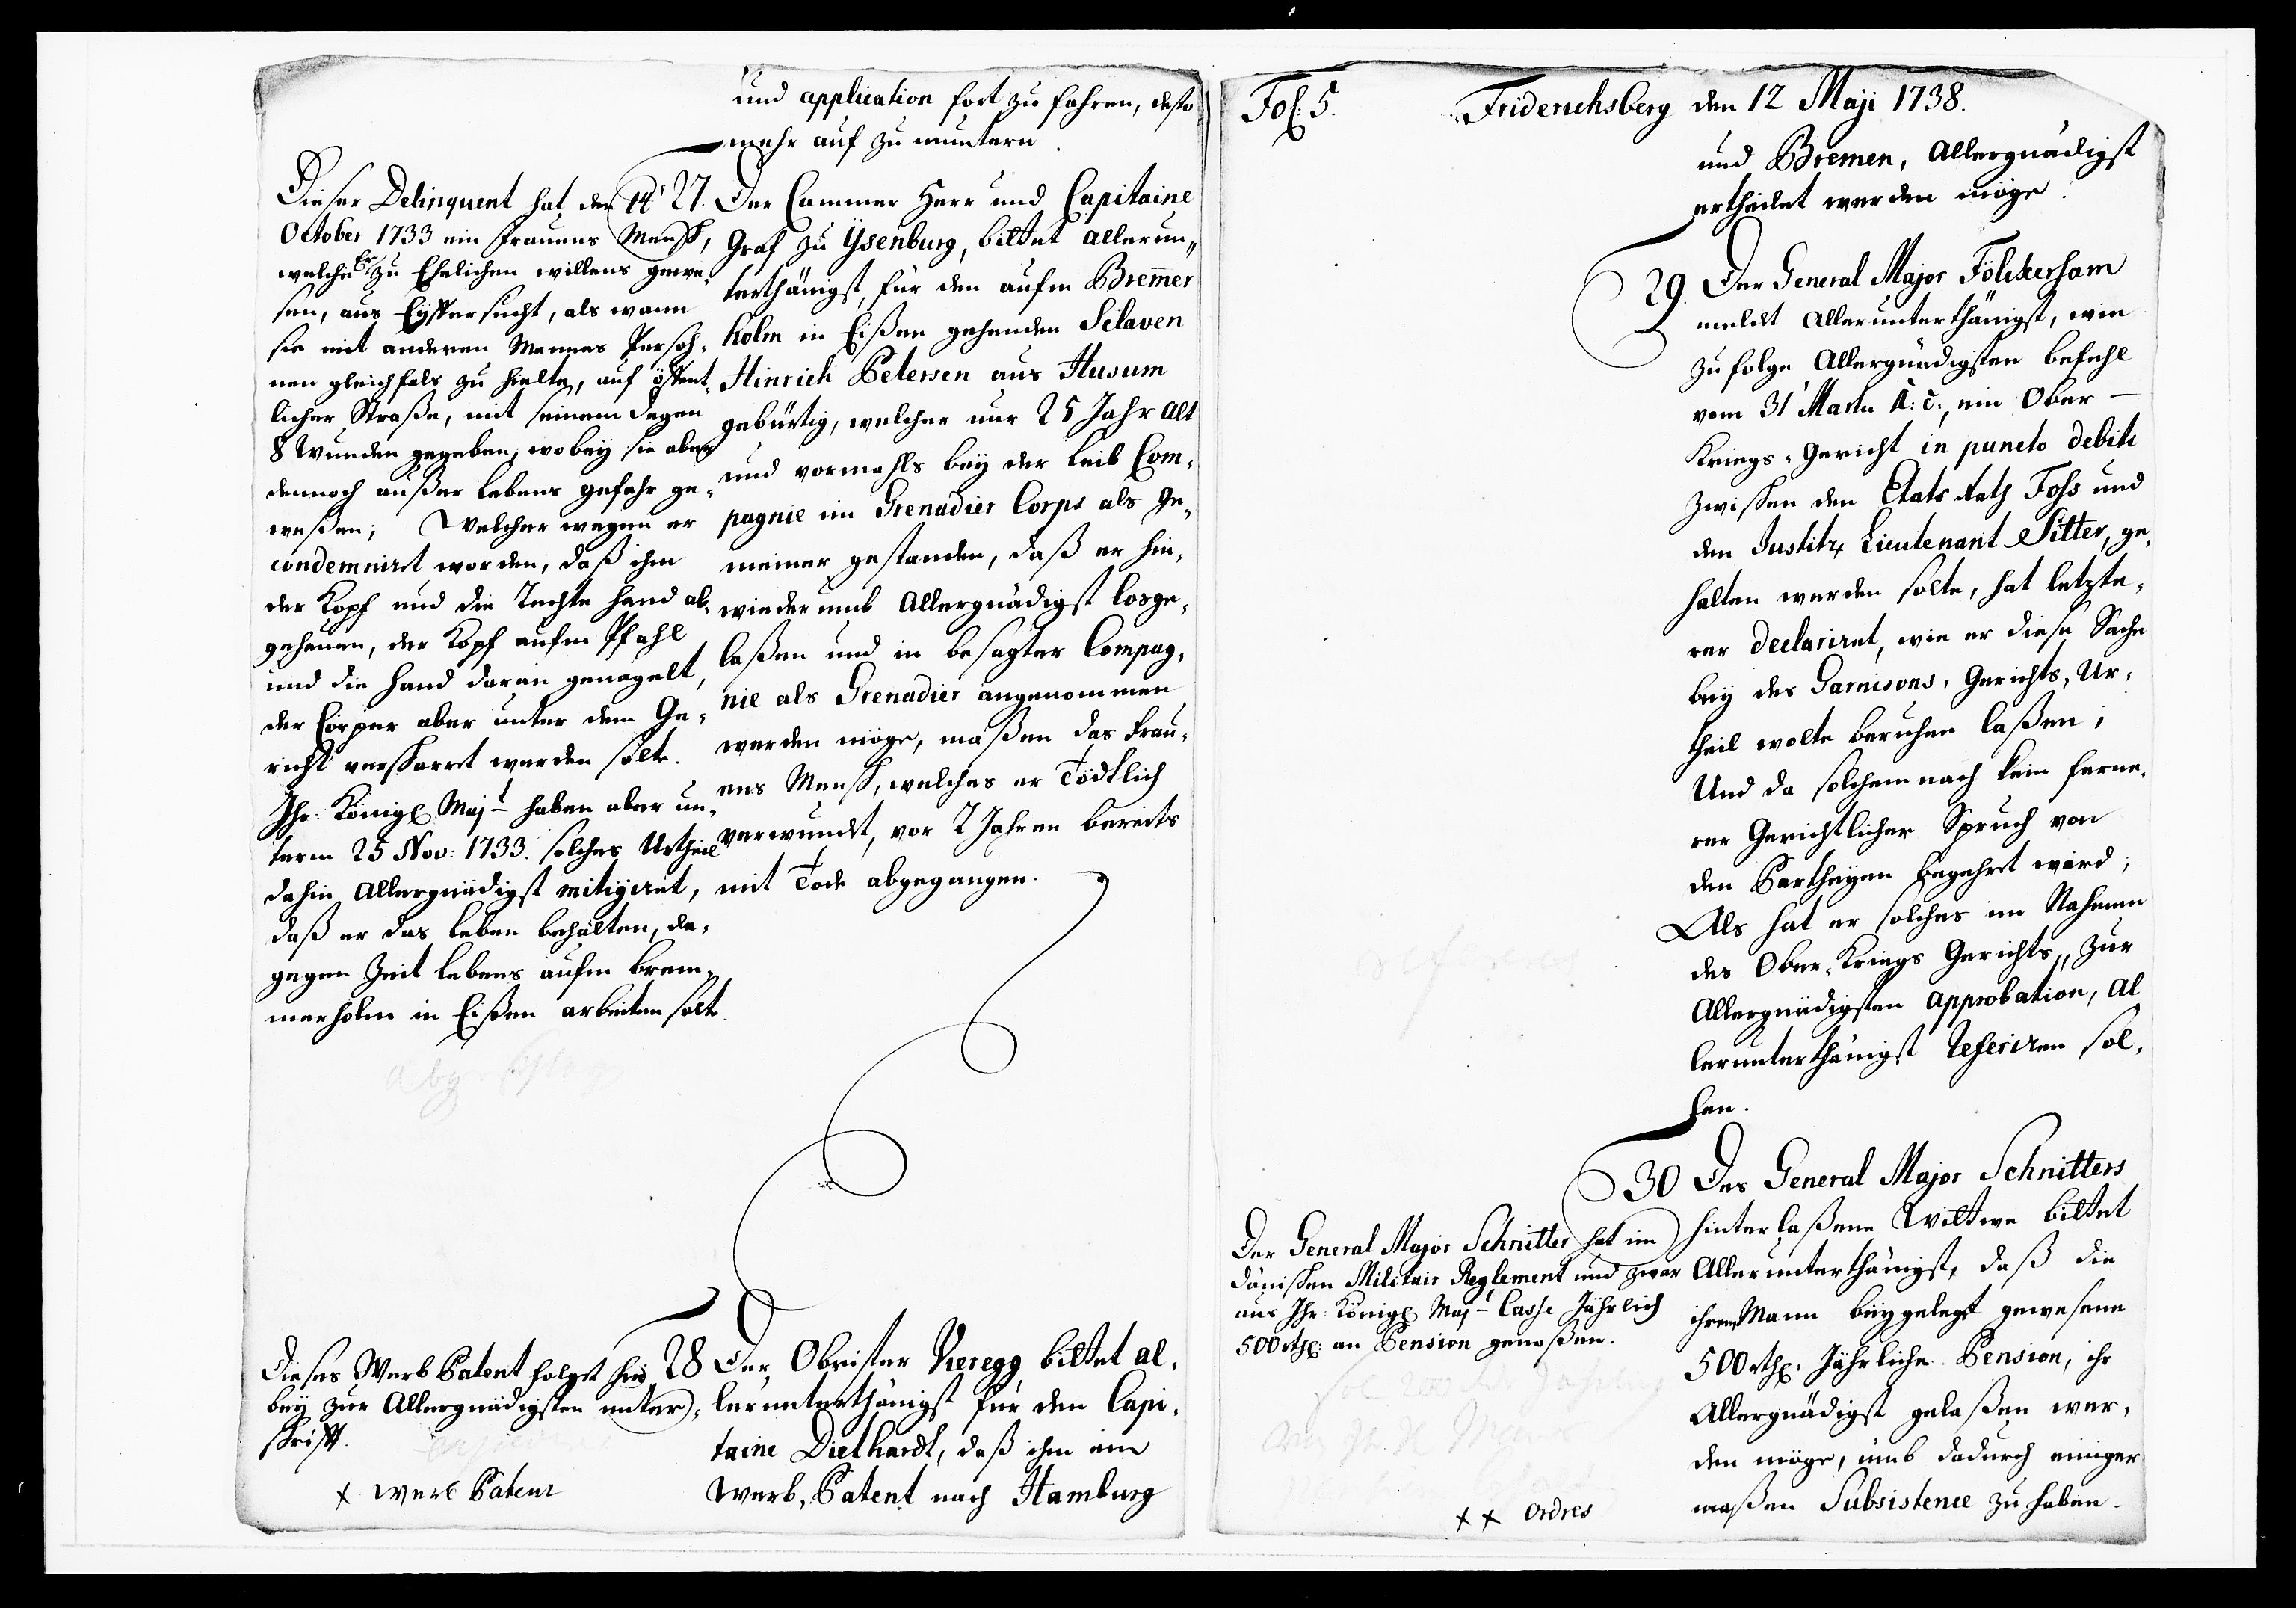 und application fort zu fahren, desto
mehr auf zu muntern.
Dieser Delinquent hat den 14t
October 1733 ein frauens Mensch,
welche Er zu Ehelichen willens gewe¬
sen, aus Eyffersucht, als wann
sie mit anderen Mannes Persoh¬
nen gleichfals zu hielte, auf öffent¬
licher Straße, mit seinem Degen
8 Wunden gegeben, wobey sie aber
dennoch außer lebens gefahr ge¬
weßen; Welcher wegen er
condemniret worden, daß ihm
der Kopf und die Rechte hand ab¬
gehauen, der Kopf aufm Pfahl
und die hand daran genagelt,
der Cörper aber unter dem Ge¬
richt verscharret werden solte.
Ihr: Königl Majt haben aber un¬
term 25 Nov: 1733. solches Urtheil
dahin Allergnädigst mitigiret,
daß er das leben behalten, da¬
gegen Zeit lebens aufm brem¬
merholm in Eißen arbeiten solte.
27. Der Cammer Herr und Capitaine
Graf zu Ysenburg, bittet allerun¬
terthänigst, für den aufm Bremer
Holm in Eißen gehenden Sclaven
Hinrich Petersen aus Husum
gebürtig, welcher nur 25 Jahr alt
und vormahls bey der leib Com¬
pagnie im Grenadier Corps als Ge¬
meiner gestanden, daß er hin¬
wiederumb Allergnädigst losge¬
laßen und in besagter Compag¬
nie als Grenadier angenommen
werden möge, maßen das frau¬
ens Mensch, welches er Tödtlich
verwundt, vor 2 Jahren bereits
mit Tode abgegangen.
Dieses Werb Patent folget hie¬
bey zur Allergnädigsten unter¬
schrifft.
x Werb Patent
28 Der Obrister Vieregg bittet al¬
lerunterthänigst für den Capi¬
taine Diethardt, daß ihm ein
Werb¬Patent nach Hamburg
Fol: 5.
Friderichsberg den 12 Maji 1738.
und Bremen, Allergnädigst
ertheilet werden möge.
29. Der General Major Fölckersam
meldet Allerunterthänigst, wie
zufolge Allergnädigsten befehl
vom 31t Martii a: c:, ein Ober¬
Kriegs¬Gericht in puncto debiti
zwischen den Etats Rath Foss und
den Justitz Lieutenant Sitter, ge¬
halten werden solte, hat letzte¬
rer declariret, wie er diese Sache
bey des Garnisons¬Gerichts¬Ur¬
theil wolte beruhen laßen;
Und da solchemnach kein ferne¬
rer Gerichtlicher Spruch von
den Partheyen begehret wird;
Als hat er solches im Nahmen
des Ober¬Kriegs Gerichts, zur
Allergnädigsten approbation, Al
lerunterthänigst Referiren sol¬
len.
Der General Major Schnitter hat im
dänischen Militair Reglement und zwar
aus Ihr: Königl Majt Casse Jährlich
500 rthl: an Pension genoßen.
xx Ordres
30 Des General Major Schnitters
hinterlaßene Wittwe bittet
Allerunterthänigst, daß die
ihrem Mann beygelegt gewesene
500 rthl. Jährliche Pension, ihr
Allergnädigst gelaßen wer¬
den möge, umb dadurch einiger
maßen Subsistence zu haben.